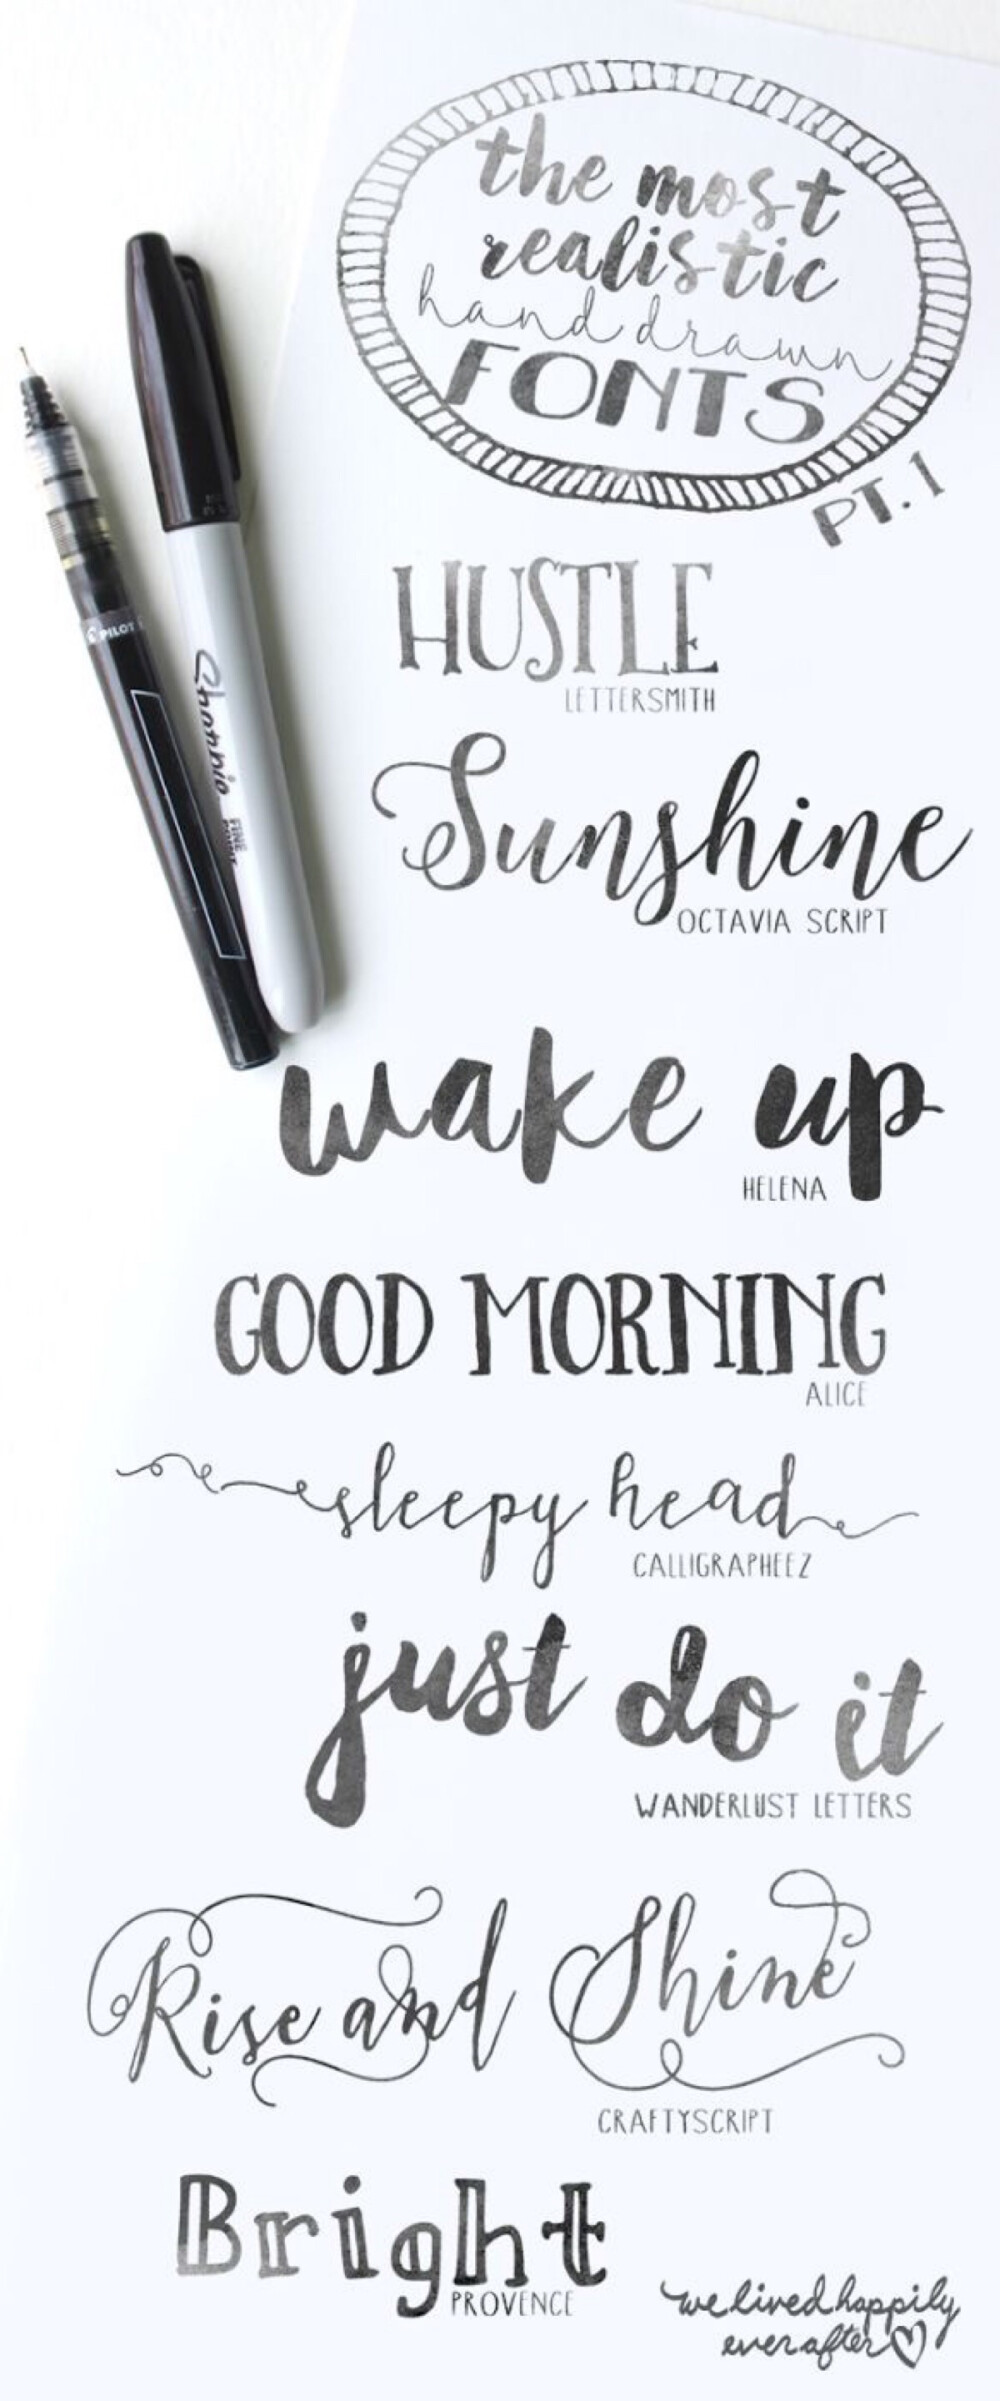 the most
realistic
hand drawn
FONTS
PT. 1
PILOT
Sharpie
FINE
POINT
HUSTLE
LETTERSMITH
Sunshine
OCTAVIA SCRIPT
wake up
HELENA
GOOD MORNING
ALICE
sleepy head
CALLIGRAPHEEZ
just do it
WANDERLUST LETTERS
Rise and Shine
CRAFTYSCRIPT
Bright
PROVENCE
we lived happily
ever after